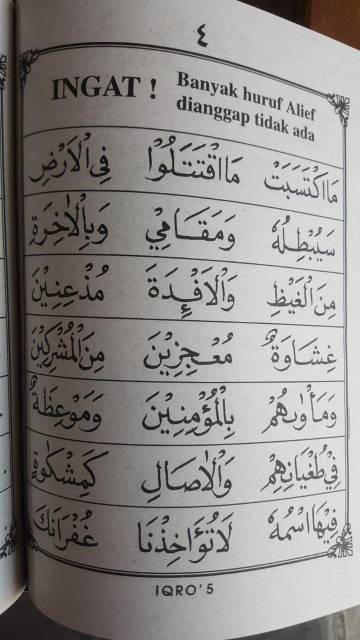 ٤
INGAT ! Banyak huruf Alief
dianggap tidak ada
مَااكْتَسَبَتْ مَااقْتَتَلُوْا فِى الْاَرْضِ
سَيُبْطِلُهٗ وَمَقَامِيْ وَبِالْاٰخِرَةِ
مِنَ الْغَيْظِ وَالْاَفْـِٕدَةَ مُذْعِنِيْنَ
غِشَاوَةٌ مُعْجِزِيْنَ مِنَ الْمُشْرِكِيْنَ
وَمَأْوٰىهُمْ بِالْمُؤْمِنِيْنَ وَمَوْعِظَةٌ
فِيْ طُغْيَانِهِمْ وَالْاٰصَالِ كَمِشْكٰوةٍ
فِيْهَااسْمُهٗ لَاتُؤَاخِذْنَا غُفْرَانَكَ
IQRO'5